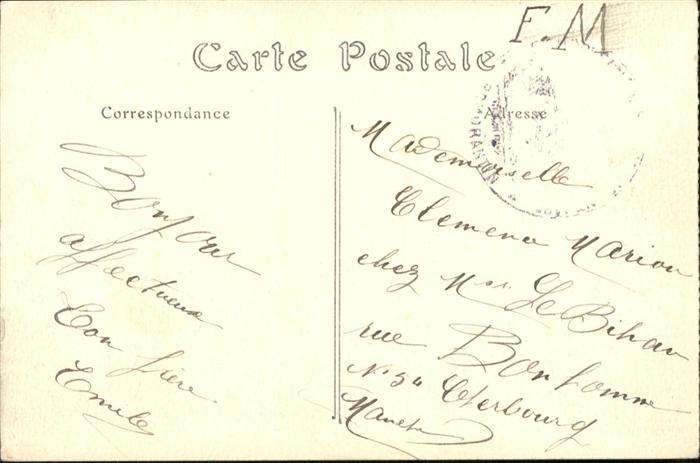 F.M
Carte Postale
Correspondance
Adresse
Bonjour
affectueux
Ton frère
Emile
Mademoiselle
Clemence Marion
chez Mr Le Bihan
rue Bonhomme
No 34 Cherbourg
Manche